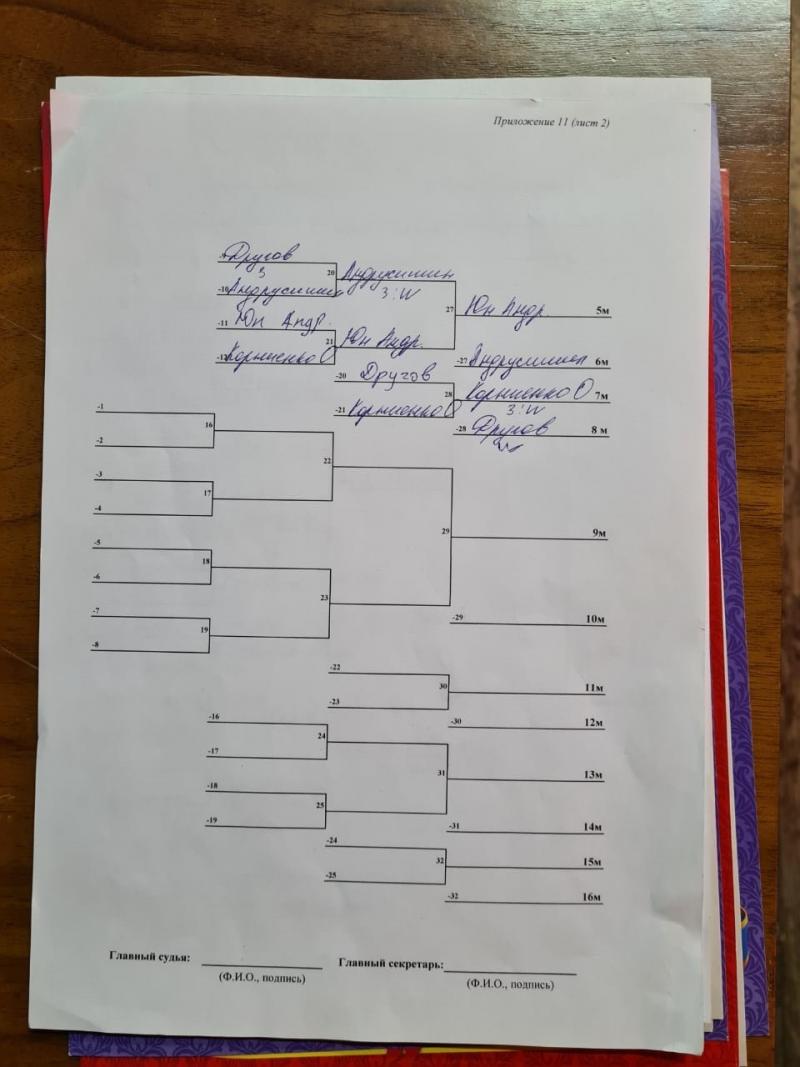 Приложение 11 (лист 2)
-9 Другов
3
20 Андрусишин
-10 Андрусишин
3:W
27 Юн Андр. 5м
-11 Юн Андр.
21 Юн Андр.
-12 Корниенко О
-27 Андрусишин 6м
-20 Другов
28 Корниенко О 7м
3:W
-21 Корниенко О
-28 Другов 8 м
-1
16
-2
22
-3
17
-4
29 9м
-5
18
-6
23
-7
19
-8
-29 10м
-22
30 11м
-23
-30 12м
-16
24
-17
31 13м
-18
25
-19
-31 14м
-24
32 15м
-25
-32 16м
Главный судья: Главный секретарь:
(Ф.И.О., подпись) (Ф.И.О., подпись)